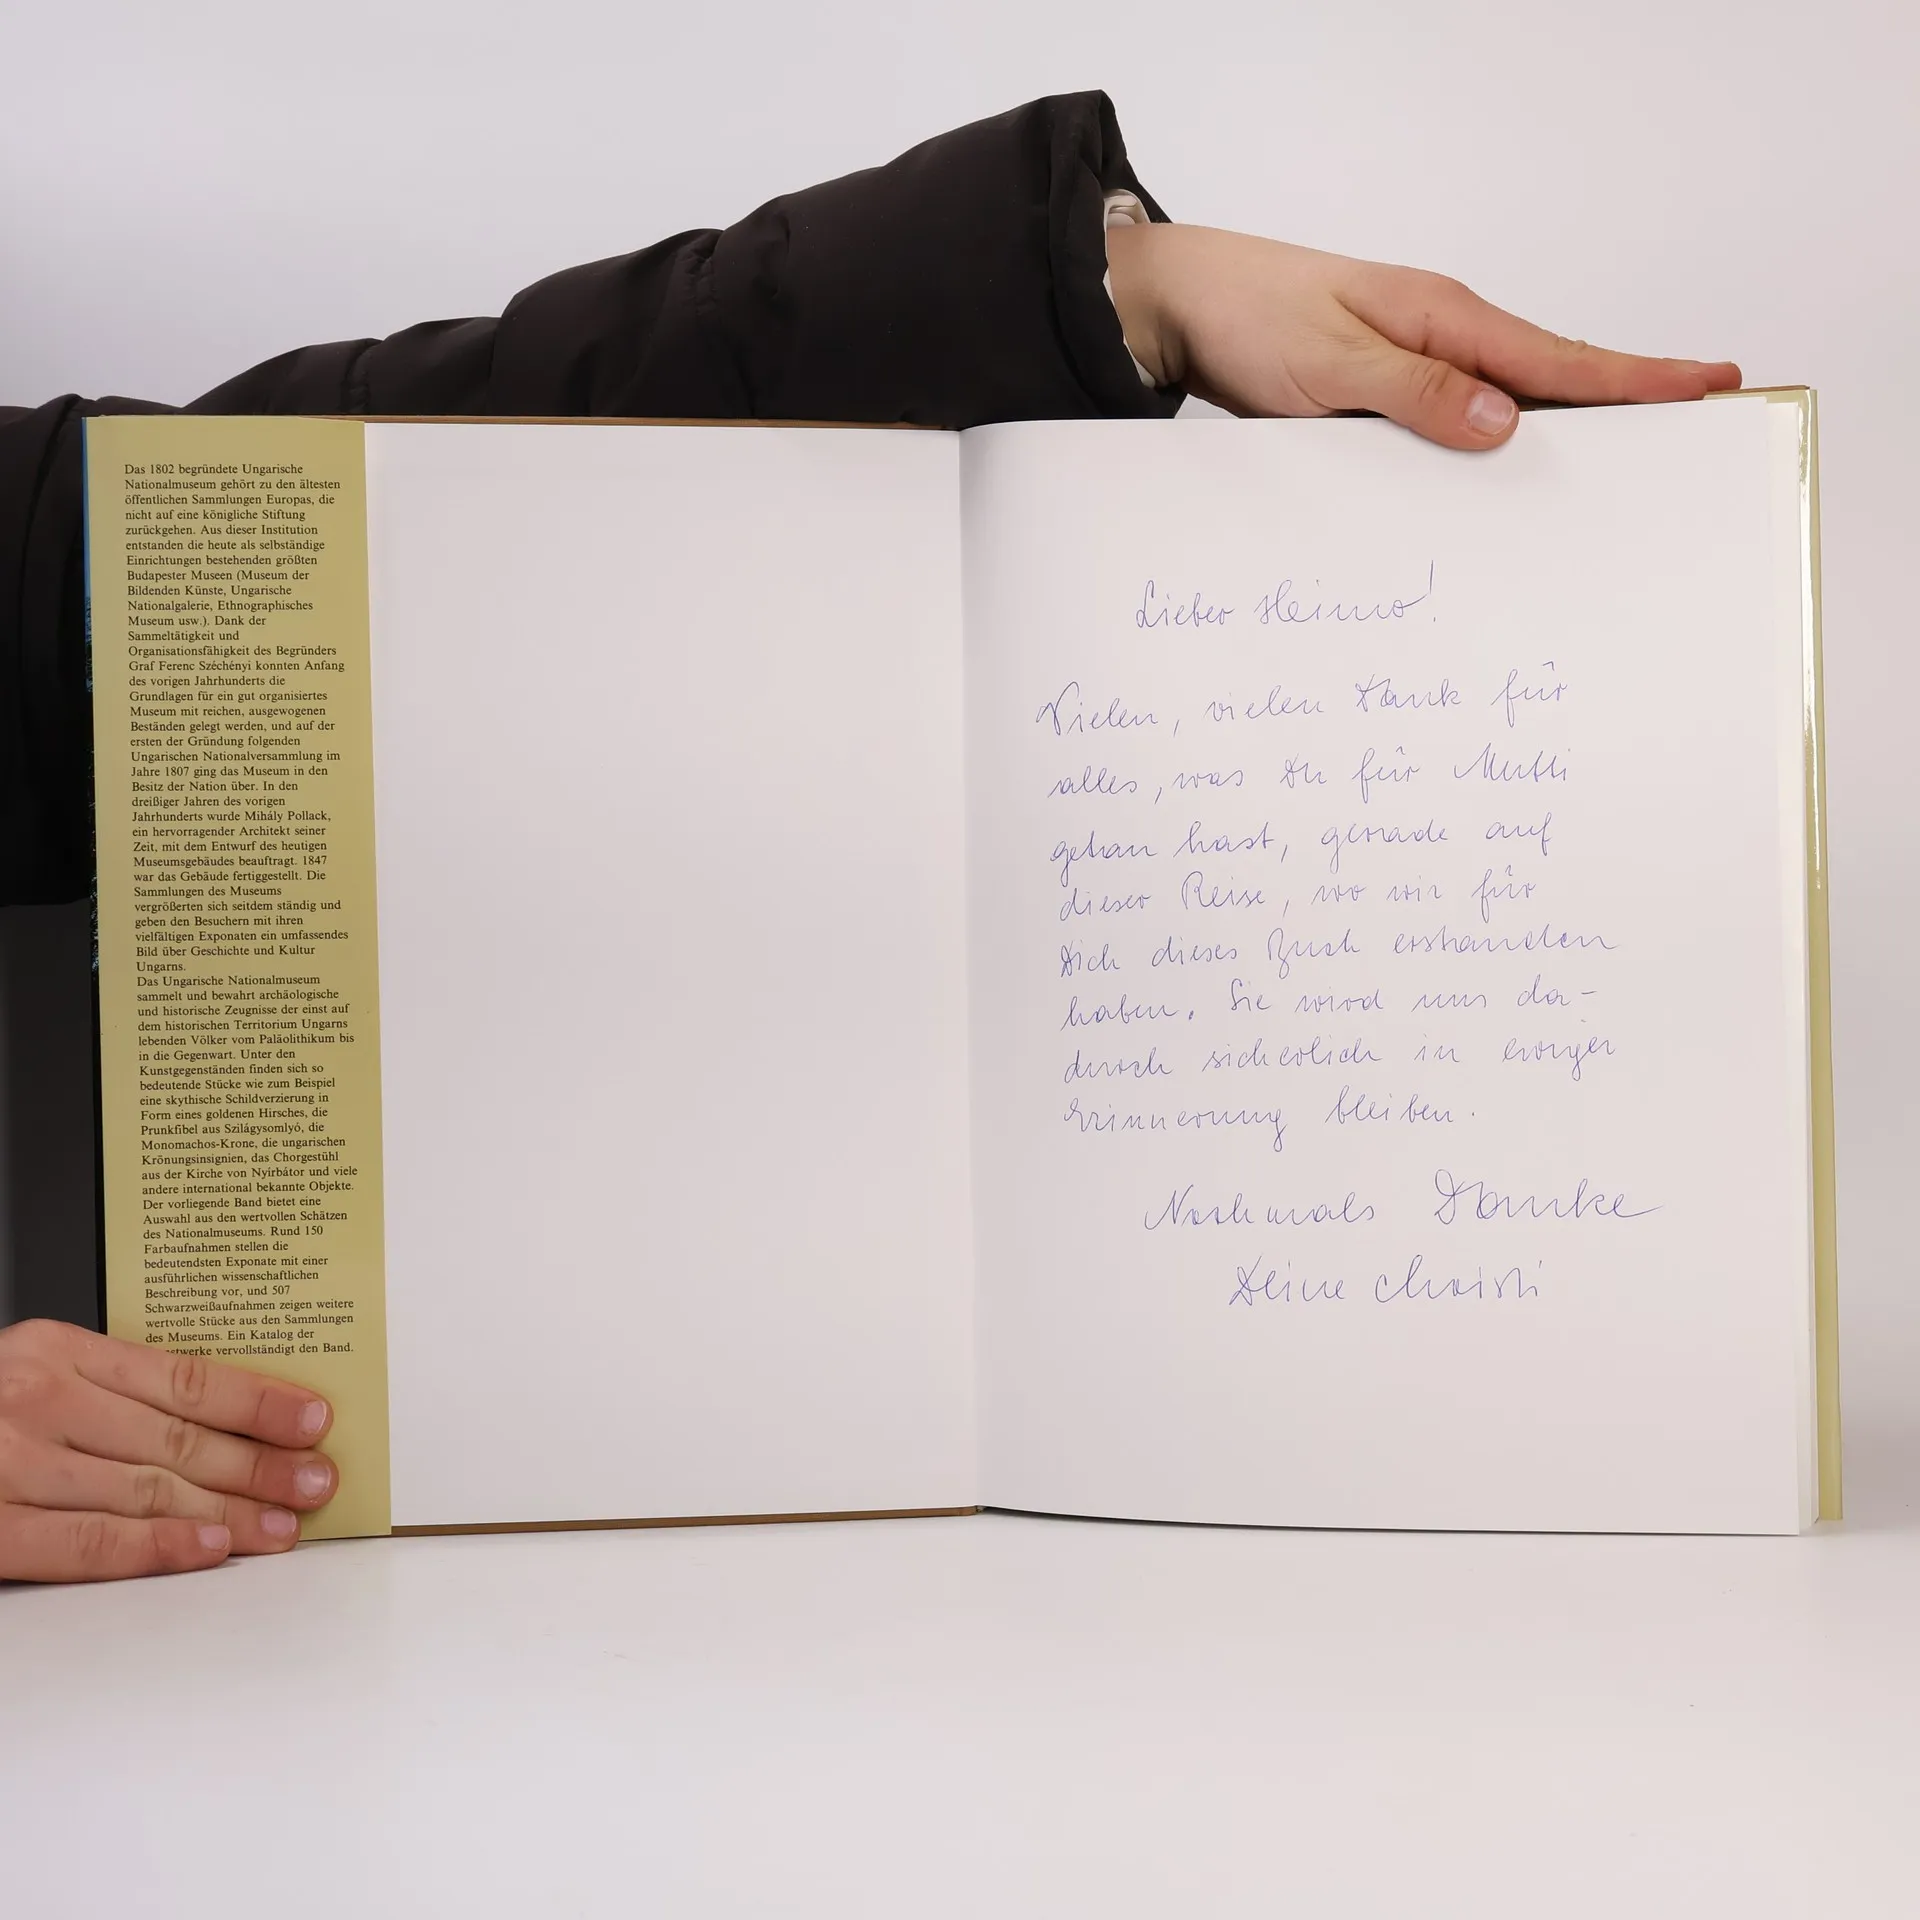 Das 1802 begründete Ungarische
Nationalmuseum gehört zu den ältesten
öffentlichen Sammlungen Europas, die
nicht auf eine königliche Stiftung
zurückgehen. Aus dieser Institution
entstanden die heute als selbständige
Einrichtungen bestehenden größten
Budapester Museen (Museum der
Bildenden Künste, Ungarische
Nationalgalerie, Ethnographisches
Museum usw.). Dank der
Sammeltätigkeit und
Organisationsfähigkeit des Begründers
Graf Ferenc Széchényi konnten Anfang
des vorigen Jahrhunderts die
Grundlagen für ein gut organisiertes
Museum mit reichen, ausgewogenen
Beständen gelegt werden, und auf der
ersten der Gründung folgenden
Ungarischen Nationalversammlung im
Jahre 1807 ging das Museum in den
Besitz der Nation über. In den
dreißiger Jahren des vorigen
Jahrhunderts wurde Mihály Pollack,
ein hervorragender Architekt seiner
Zeit, mit dem Entwurf des heutigen
Museumsgebäudes beauftragt. 1847
war das Gebäude fertiggestellt. Die
Sammlungen des Museums
vergrößerten sich seitdem ständig und
geben den Besuchern mit ihren
vielfältigen Exponaten ein umfassendes
Bild über Geschichte und Kultur
Ungarns.
Das Ungarische Nationalmuseum
sammelt und bewahrt archäologische
und historische Zeugnisse der einst auf
dem historischen Territorium Ungarns
lebenden Völker vom Paläolithikum bis
in die Gegenwart. Unter den
Kunstgegenständen finden sich so
bedeutende Stücke wie zum Beispiel
eine skythische Schildverzierung in
Form eines goldenen Hirsches, die
Prunkfibel aus Szilágysomlyó, die
Monomachos-Krone, die ungarischen
Krönungsinsignien, das Chorgestühl
aus der Kirche von Nyírbátor und viele
andere international bekannte Objekte.
Der vorliegende Band bietet eine
Auswahl aus den wertvollen Schätzen
des Nationalmuseums. Rund 150
Farbaufnahmen stellen die
bedeutendsten Exponate mit einer
ausführlichen wissenschaftlichen
Beschreibung vor, und 507
Schwarzweißaufnahmen zeigen weitere
wertvolle Stücke aus den Sammlungen
des Museums. Ein Katalog der
vervollständigt den Band.
Lieber Heimo!
Vielen, vielen Dank für
alles, was Du für Mutti
getan hast, gerade auf
dieser Reise, wo wir für
Dich dieses Buch erstanden
haben. Sie wird uns da-
durch sicherlich in ewiger
Erinnerung bleiben.
Nochmals Danke
Deine Christi